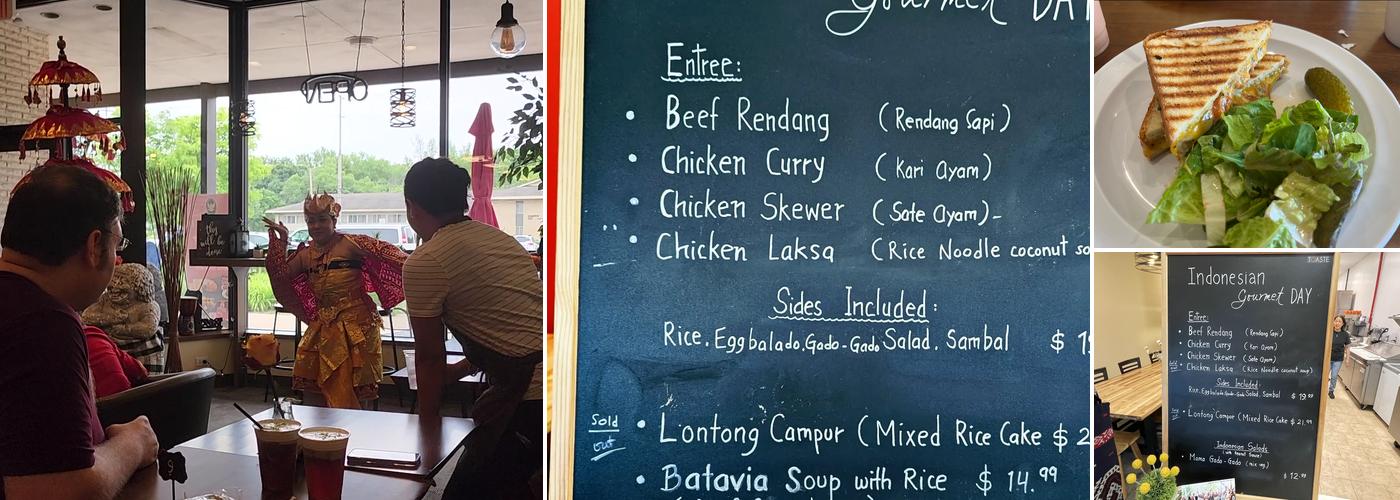 OPEN
thy
will be
done
9
Gourmet DAY
Entree:
• Beef Rendang (Rendang Sapi)
• Chicken Curry (Kari Ayam)
• Chicken Skewer (Sate Ayam)-
• Chicken Laksa (Rice Noodle coconut so
Sides Included:
Rice. Egg balado, Gado-Gado Salad. Sambal $ 19
Sold
out
• Lontong Campur (Mixed Rice Cake $ 2
• Batavia Soup with Rice $ 14.99
TOASTE
Indonesian
Gourmet DAY
Entree:
• Beef Rendang (Rendang Sapi)
• Chicken Curry (Kari Ayam)
• Chicken Skewer (Sate Ayam)
• Chicken Laksa (Rice Noodle coconut soup)
Sides Included:
Rice, Egg balado, Gado-Gado Salad, Sambal $ 19.99
• Lontong Campur (Mixed Rice Cake $ 21.99
Indonesian Salads
(with Peanut Sauce)
• Mama Gado-Gado (mix veg)
$ 12.99